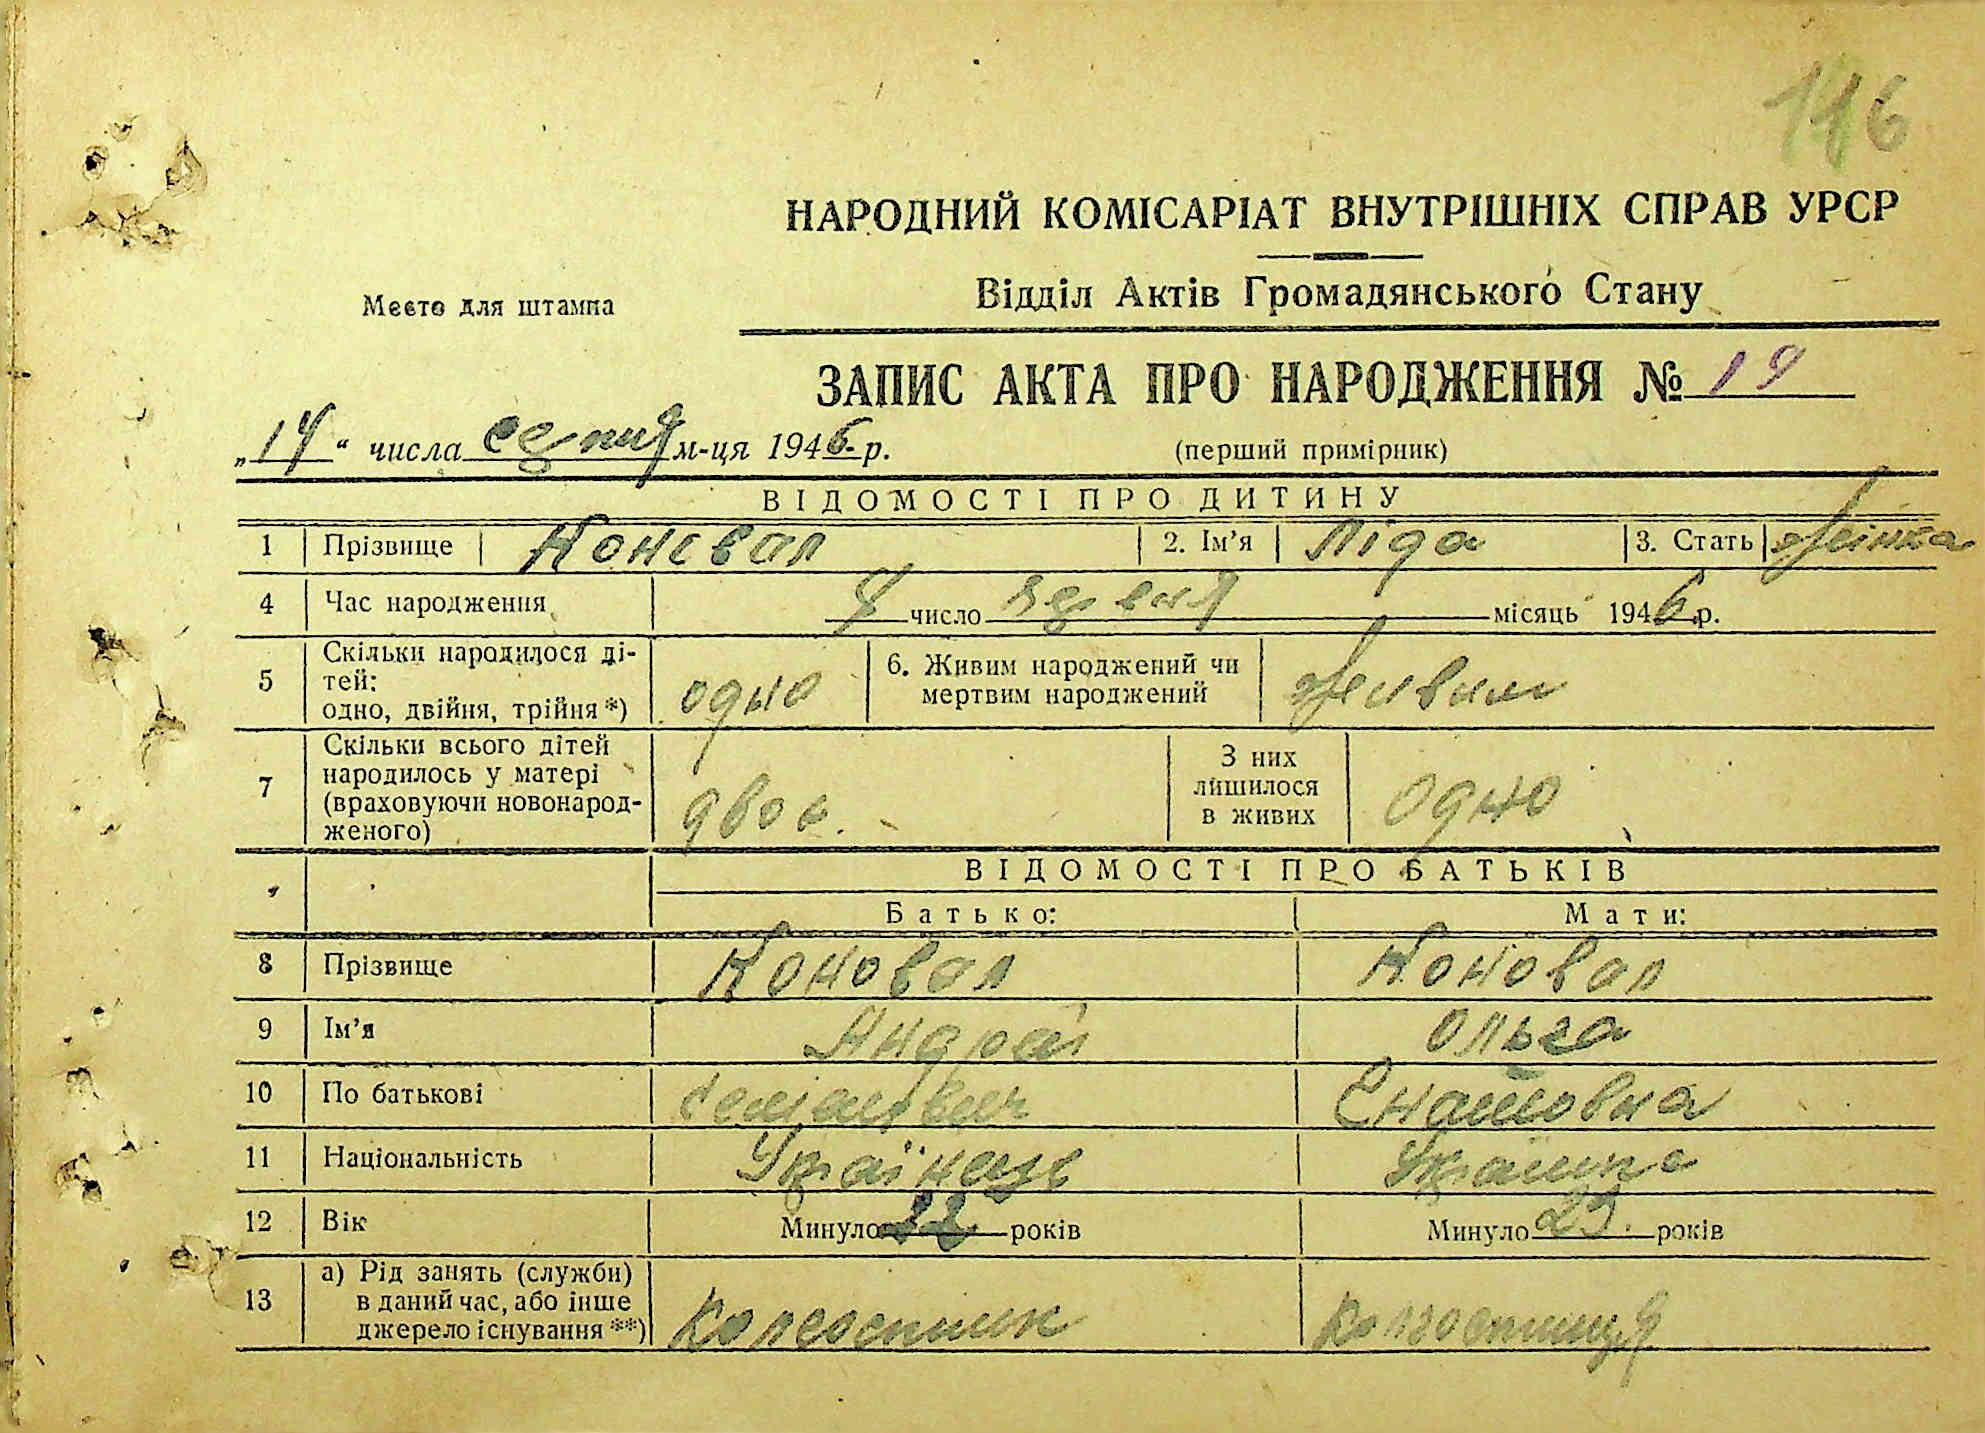 116
НАРОДНИЙ КОМІСАРІАТ ВНУТРІШНІХ СПРАВ УРСР
Место для штампа
Відділ Актів Громадянського Стану
ЗАПИС АКТА ПРО НАРОДЖЕННЯ № 19
„14“ числа серпня м-ця 1946 р. (перший примірник)
ВІДОМОСТІ ПРО ДИТИНУ
1 Прізвище Коновал 2. Ім’я Ліда 3. Стать жінка
4 Час народження число червня місяць 1946 р.
5 Скільки народилося ді-
тей:
одно, двійня, трійня *) одно
6. Живим народжений чи
мертвим народжений живим
7 Скільки всього дітей
народилось у матері
(враховуючи новонарод-
женого) двоє.
З них
лишилося
в живих одно
ВІДОМОСТІ ПРО БАТЬКІВ
Батько: Мати:
8 Прізвище Коновал Коновал
9 Ім’я Андрій Ольга
10 По батькові
11 Національність Українець Українка
12 Вік Минуло 22 років Минуло 23 років
13 а) Рід занять (служби)
в даний час, або інше
джерело існування **) Колгоспник колгоспниця